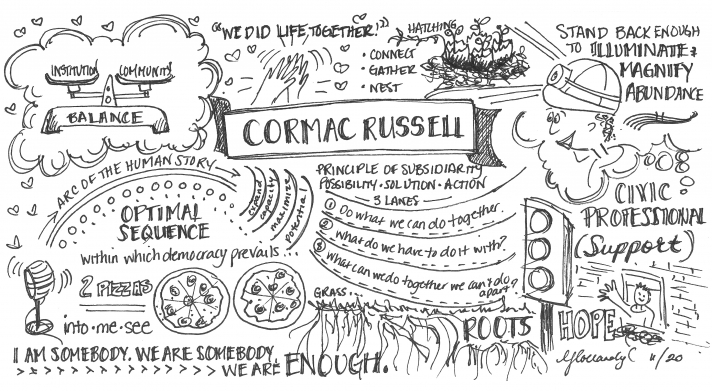 INSTITUTION COMMUNITY
BALANCE
"WE DID LIFE TOGETHER!"
HATCHING
• CONNECT
• GATHER
• NEST
STAND BACK ENOUGH
TO ILLUMINATE &
MAGNIFY
ABUNDANCE
CORMAC RUSSELL
ARC OF THE HUMAN STORY
expand
capacity
maximize
potential
OPTIMAL
SEQUENCE
within which democracy prevails...
2 PIZZAS
into•me•see
PRINCIPLE OF SUBSIDIARITY
POSSIBILITY • SOLUTION • ACTION
3 LANES
1 Do what we can do together.
2 What do we have to do it with?
3 What can we do together we can't do
apart?
CIVIC
PROFESSIONAL
(Support)
GRASS...
ROOTS
HOPE
I AM SOMEBODY. WE ARE SOMEBODY.
WE ARE ENOUGH.
11/20